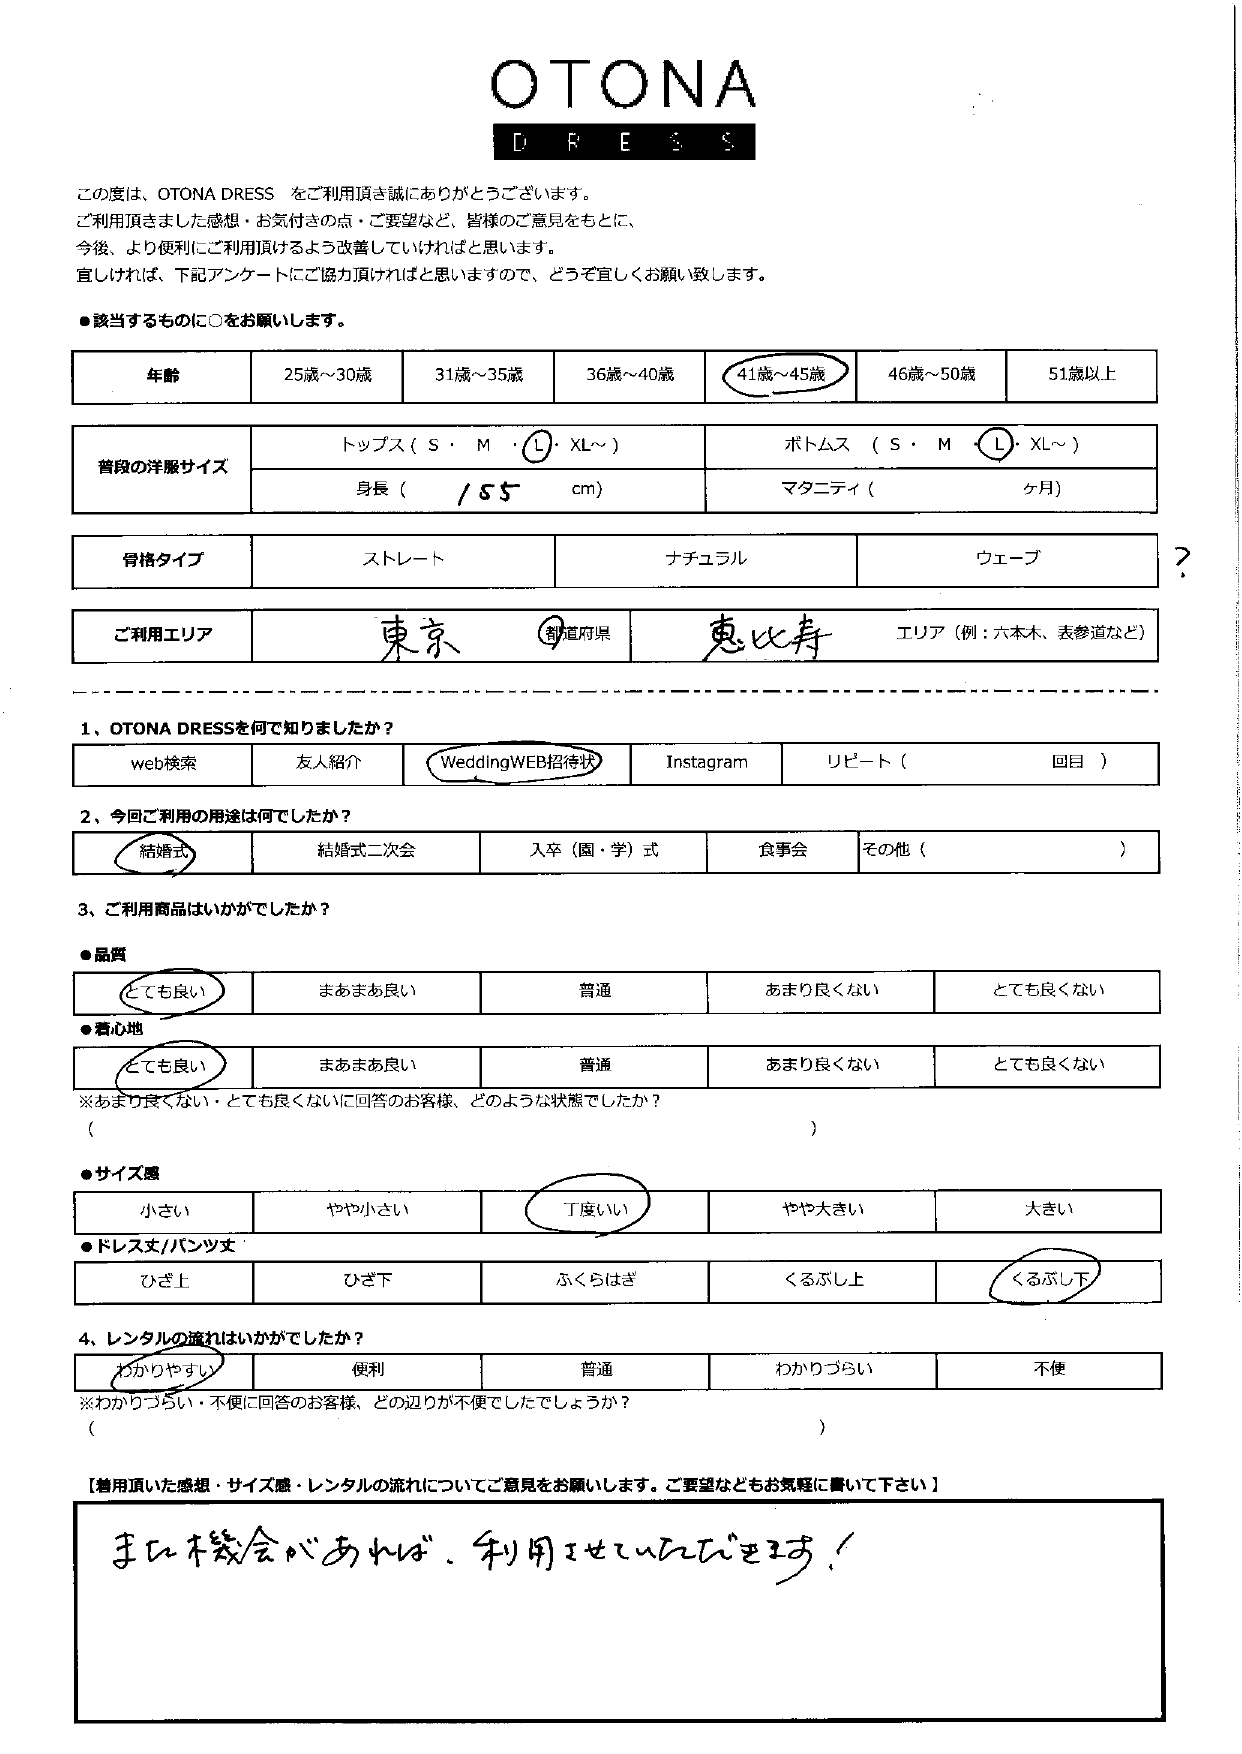 OTONA
DRESS
この度は、OTONA DRESS をご利用頂き誠にありがとうございます。
ご利用頂きました感想・お気付きの点・ご要望など、皆様のご意見をもとに、
今後、より便利にご利用頂けるよう改善していければと思います。
宜しければ、下記アンケートにご協力頂ければと思いますので、どうぞ宜しくお願い致します。
●該当するものに○をお願いします。
年齢 25歳～30歳 31歳～35歳 36歳～40歳 41歳～45歳 46歳～50歳 51歳以上
普段の洋服サイズ トップス ( S ・ M ・ L ・ XL～ ) ボトムス ( S ・ M ・ L ・ XL～ )
身長 ( 155 cm) マタニティ ( ヶ月)
骨格タイプ ストレート ナチュラル ウェーブ ?
ご利用エリア 東京 都道府県 恵比寿 エリア（例：六本木、表参道など）
1、OTONA DRESSを何で知りましたか？
web検索 友人紹介 WeddingWEB招待状 Instagram リピート ( 回目 )
2、今回ご利用の用途は何でしたか？
結婚式 結婚式二次会 入卒（園・学）式 食事会 その他 ( )
3、ご利用商品はいかがでしたか？
●品質
とても良い まあまあ良い 普通 あまり良くない とても良くない
●着心地
とても良い まあまあ良い 普通 あまり良くない とても良くない
※あまり良くない・とても良くないに回答のお客様、どのような状態でしたか？
( )
●サイズ感
小さい やや小さい 丁度いい やや大きい 大きい
●ドレス丈/パンツ丈
ひざ上 ひざ下 ふくらはぎ くるぶし上 くるぶし下
4、レンタルの流れはいかがでしたか？
わかりやすい 便利 普通 わかりづらい 不便
※わかりづらい・不便に回答のお客様、どの辺りが不便でしたでしょうか？
( )
【着用頂いた感想・サイズ感・レンタルの流れについてご意見をお願いします。ご要望などもお気軽に書いて下さい】
また機会があれば、利用させていただきます！